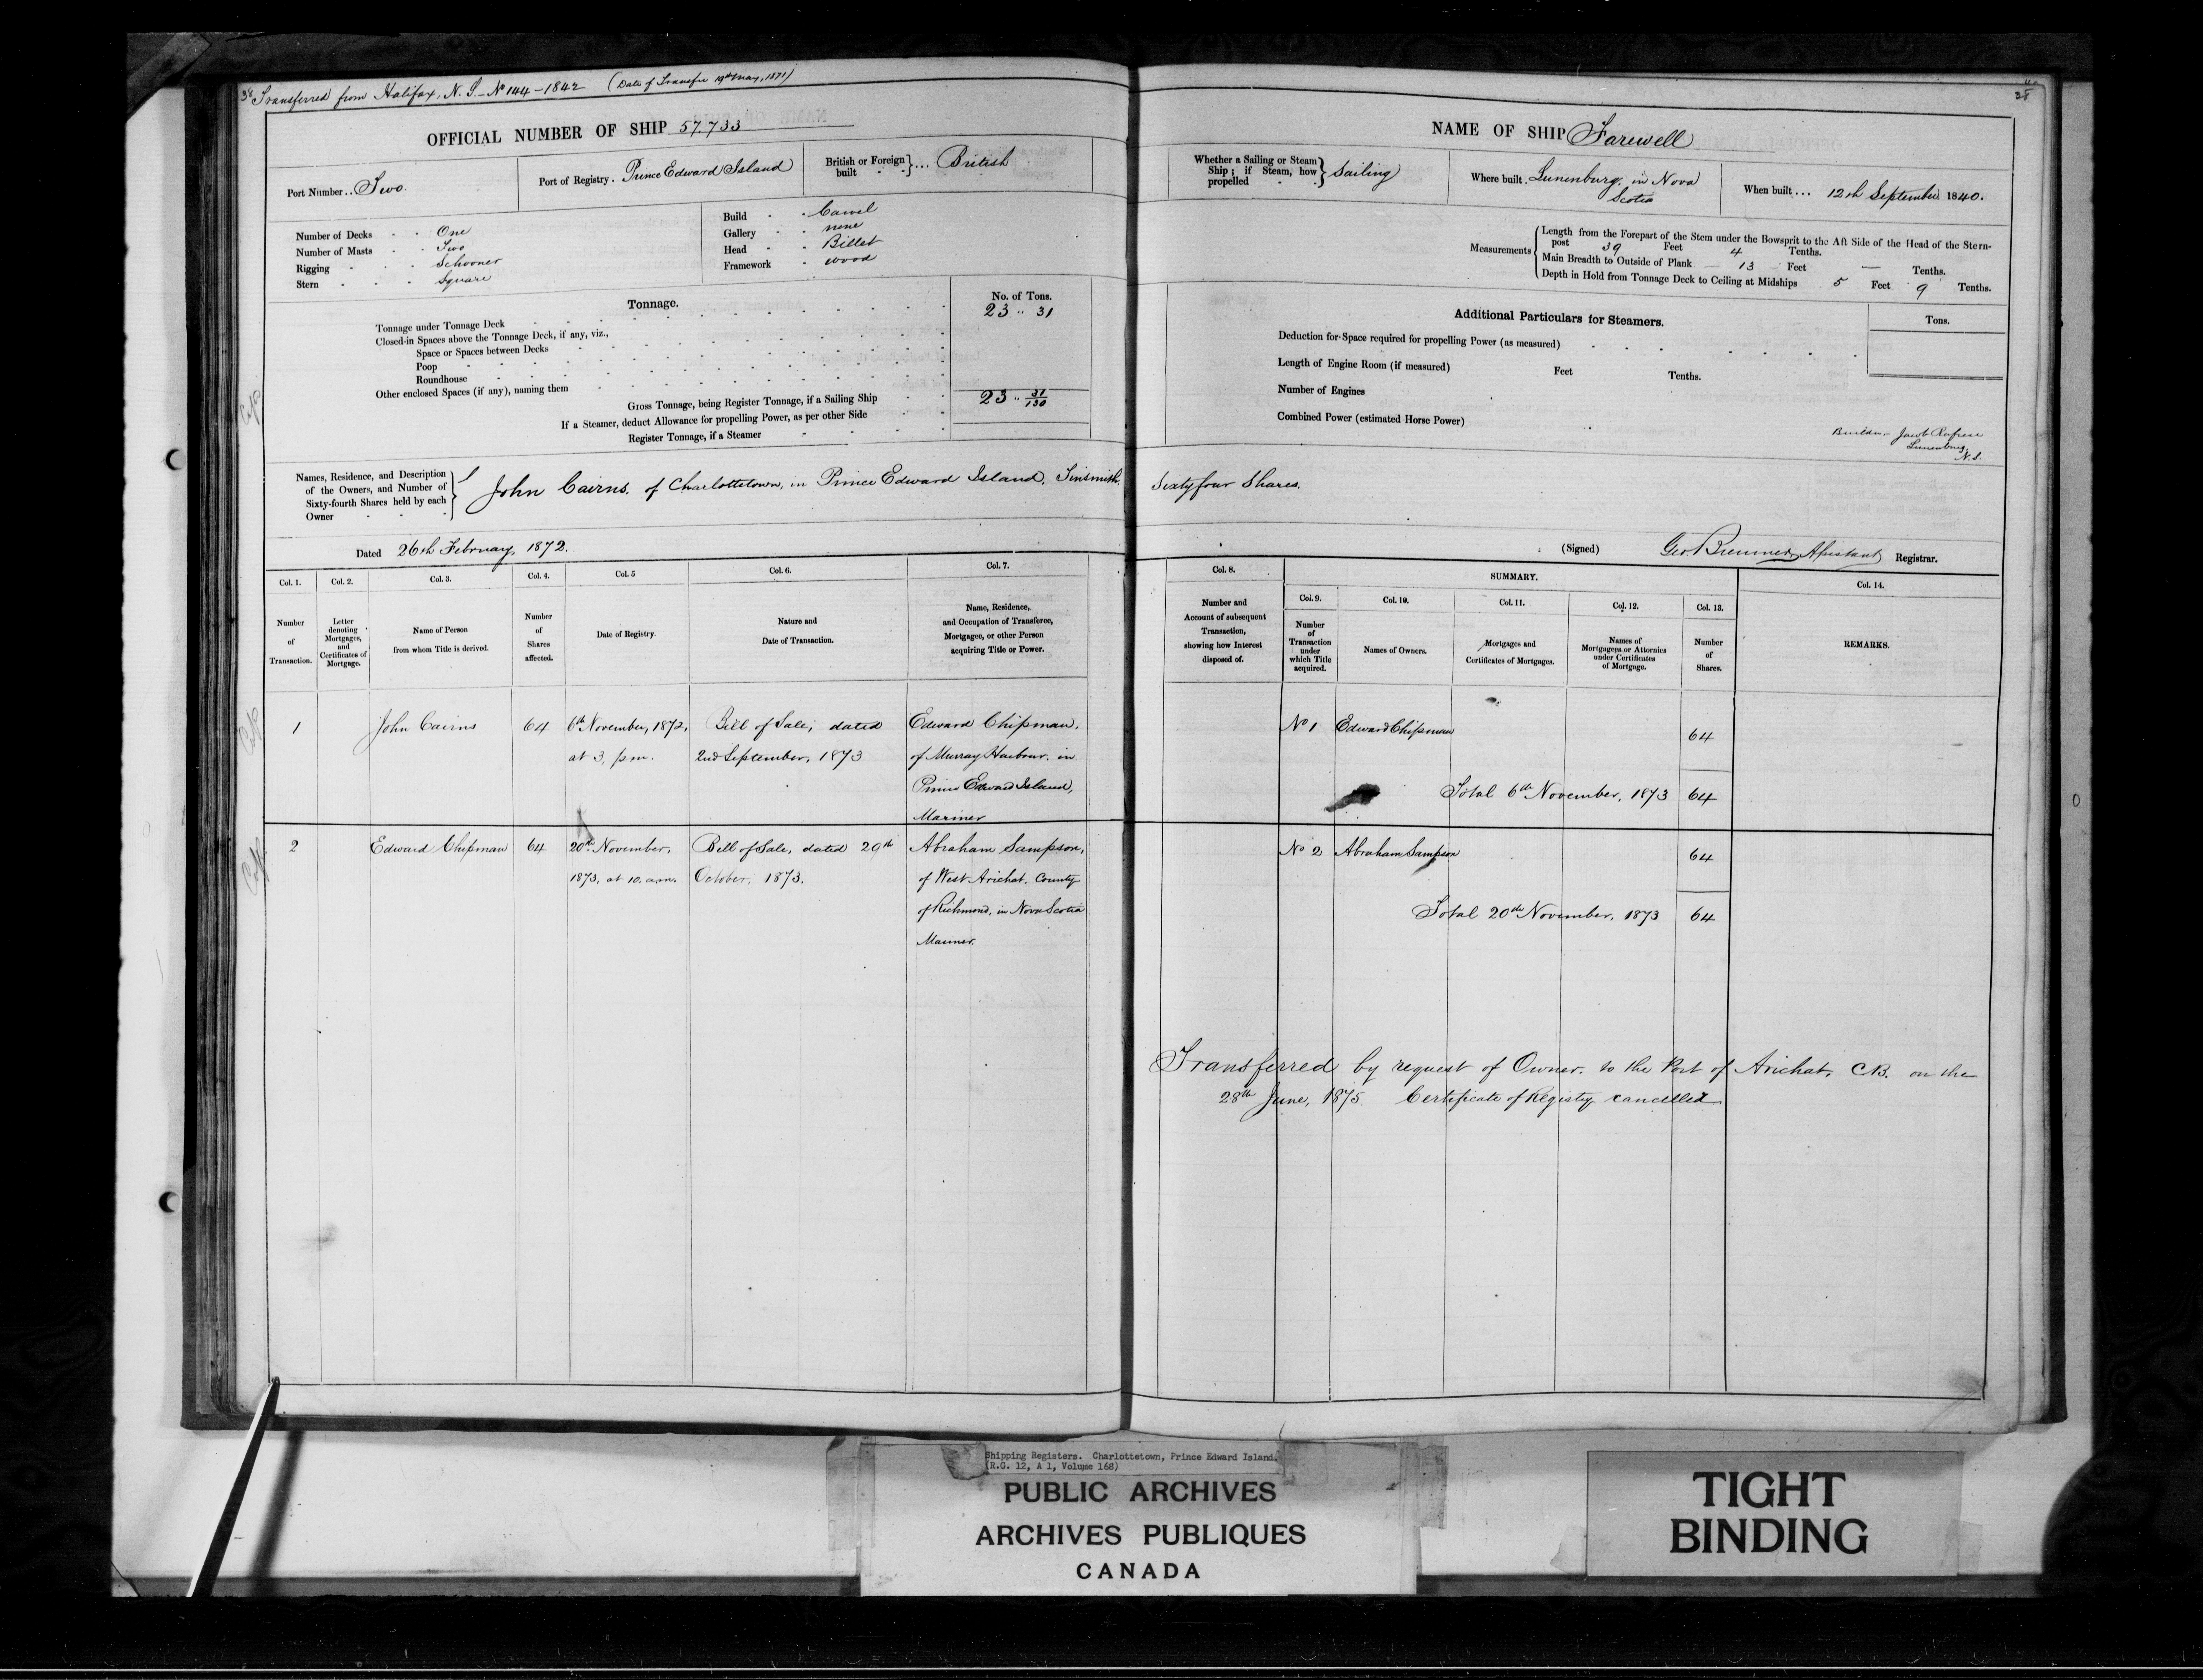 38 Transferred from Halifax, N.S. - No 144 - 1842 (Date of Transfer 19th May, 1871)
OFFICIAL NUMBER OF SHIP 57.733
Port Number .. Two.
Port of Registry . Prince Edward Island
British or Foreign built } ... British
Number of Decks - - One
Number of Masts - - Two
Rigging - - - Schooner
Stern - - - Square
Build - - Carvel
Gallery - - none
Head - - Billet
Framework - wood
Tonnage.
No. of Tons.
Tonnage under Tonnage Deck 23 .. 31
Closed-in Spaces above the Tonnage Deck, if any, viz.,
Space or Spaces between Decks
Poop
Roundhouse
Other enclosed Spaces (if any), naming them
Gross Tonnage, being Register Tonnage, if a Sailing Ship 23 .. 31/130
If a Steamer, deduct Allowance for propelling Power, as per other Side
Register Tonnage, if a Steamer
Names, Residence, and Description
of the Owners, and Number of
Sixty-fourth Shares held by each
Owner
John Cairns, of Charlottetown, in Prince Edward Island, Tinsmith. Sixty four Shares.
Dated 26th February, 1872.
NAME OF SHIP Farewell
Whether a Sailing or Steam
Ship; if Steam, how
propelled } Sailing
Where built . Lunenburg, in Nova
Scotia
When built ... 12th September 1840.
Measurements
Length from the Forepart of the Stem under the Bowsprit to the Aft Side of the Head of the Stern-
post 39 Feet 4 Tenths.
Main Breadth to Outside of Plank 13 Feet — Tenths.
Depth in Hold from Tonnage Deck to Ceiling at Midships 5 Feet 9 Tenths.
Additional Particulars for Steamers.
Tons.
Deduction for Space required for propelling Power (as measured)
Length of Engine Room (if measured) Feet Tenths.
Number of Engines
Combined Power (estimated Horse Power)
Builder - Jacob
Lunenburg,
N.S.
(Signed) Geo Bremner, Assistant Registrar.
Col. 1. Col. 2. Col. 3. Col. 4. Col. 5 Col. 6. Col. 7.
Number
of
Transaction.
Letter
denoting
Mortgages,
and
Certificates of
Mortgage.
Name of Person
from whom Title is derived.
Number
of
Shares
affected.
Date of Registry.
Nature and
Date of Transaction.
Name, Residence,
and Occupation of Transferee,
Mortgagee, or other Person
acquiring Title or Power.
Col. 8.
Number and
Account of subsequent
Transaction,
showing how Interest
disposed of.
SUMMARY.
Col. 9. Col. 10. Col. 11. Col. 12. Col. 13.
Number
of
Transaction
under
which Title
acquired.
Names of Owners.
Mortgages and
Certificates of Mortgages.
Names of
Mortgagees or Attornies
under Certificates
of Mortgage.
Number
of
Shares.
Col. 14.
REMARKS.
1 John Cairns 64 6th November, 1872, Bill of Sale, dated Edward Chipman,
at 3, p.m. 2nd September, 1873 of Murray Harbour, in
Prince Edward Island,
Mariner
No 1 Edward Chipman 64
Total 6th November, 1873 64
2 Edward Chipman 64 20th November, Bill of Sale, dated 29th Abraham Sampson,
1873, at 10. a.m. October, 1873. of West Arichat, County
of Richmond, in Nova Scotia
Mariner.
No 2 Abraham Sampson 64
Total 20th November, 1873 64
Transferred by request of Owner, to the Port of Arichat, C.B. on the
28th June, 1875 Certificate of Registry cancelled
Shipping Registers. Charlottetown, Prince Edward Island.
(R.G. 12, A 1, Volume 168)
PUBLIC ARCHIVES
ARCHIVES PUBLIQUES
CANADA
TIGHT
BINDING